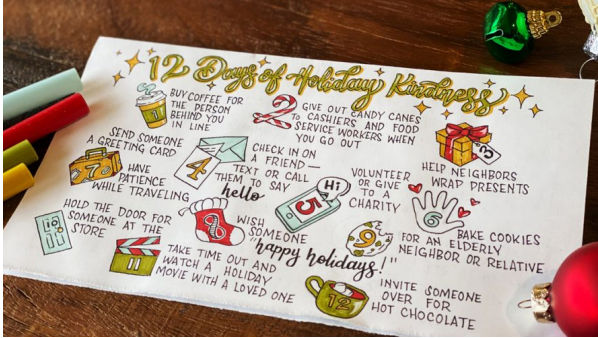 12 Days of Holiday Kindness
1
BUY COFFEE FOR
THE PERSON
BEHIND YOU
IN LINE
2
GIVE OUT CANDY CANES
TO CASHIERS AND FOOD
SERVICE WORKERS WHEN
YOU GO OUT
3
HELP NEIGHBORS
WRAP PRESENTS
SEND SOMEONE
A GREETING CARD
4
CHECK IN ON
A FRIEND—
TEXT OR CALL
THEM TO SAY
hello
Hi
5
VOLUNTEER
OR GIVE
TO A
CHARITY
6
7
HAVE
PATIENCE
WHILE TRAVELING
8
WISH
SOMEONE
"happy holidays!"
9
BAKE COOKIES
FOR AN ELDERLY
NEIGHBOR OR RELATIVE
HOLD THE DOOR FOR
SOMEONE AT THE
STORE
10
11
TAKE TIME OUT AND
WATCH A HOLIDAY
MOVIE WITH A LOVED ONE
12
INVITE SOMEONE
OVER FOR
HOT CHOCOLATE